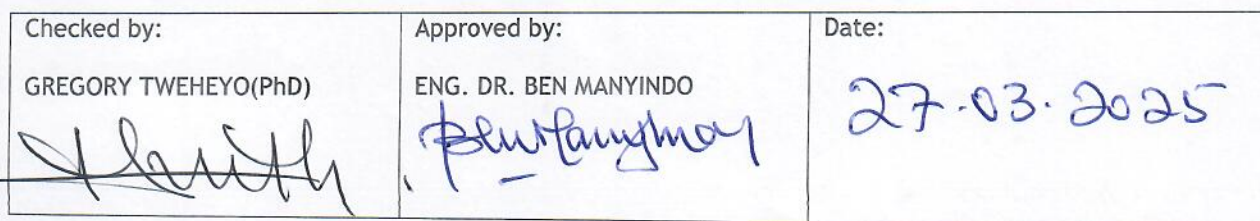 Checked by:
GREGORY TWEHEYO(PhD)
Approved by:
ENG. DR. BEN MANYINDO
Date:
27.03.2025